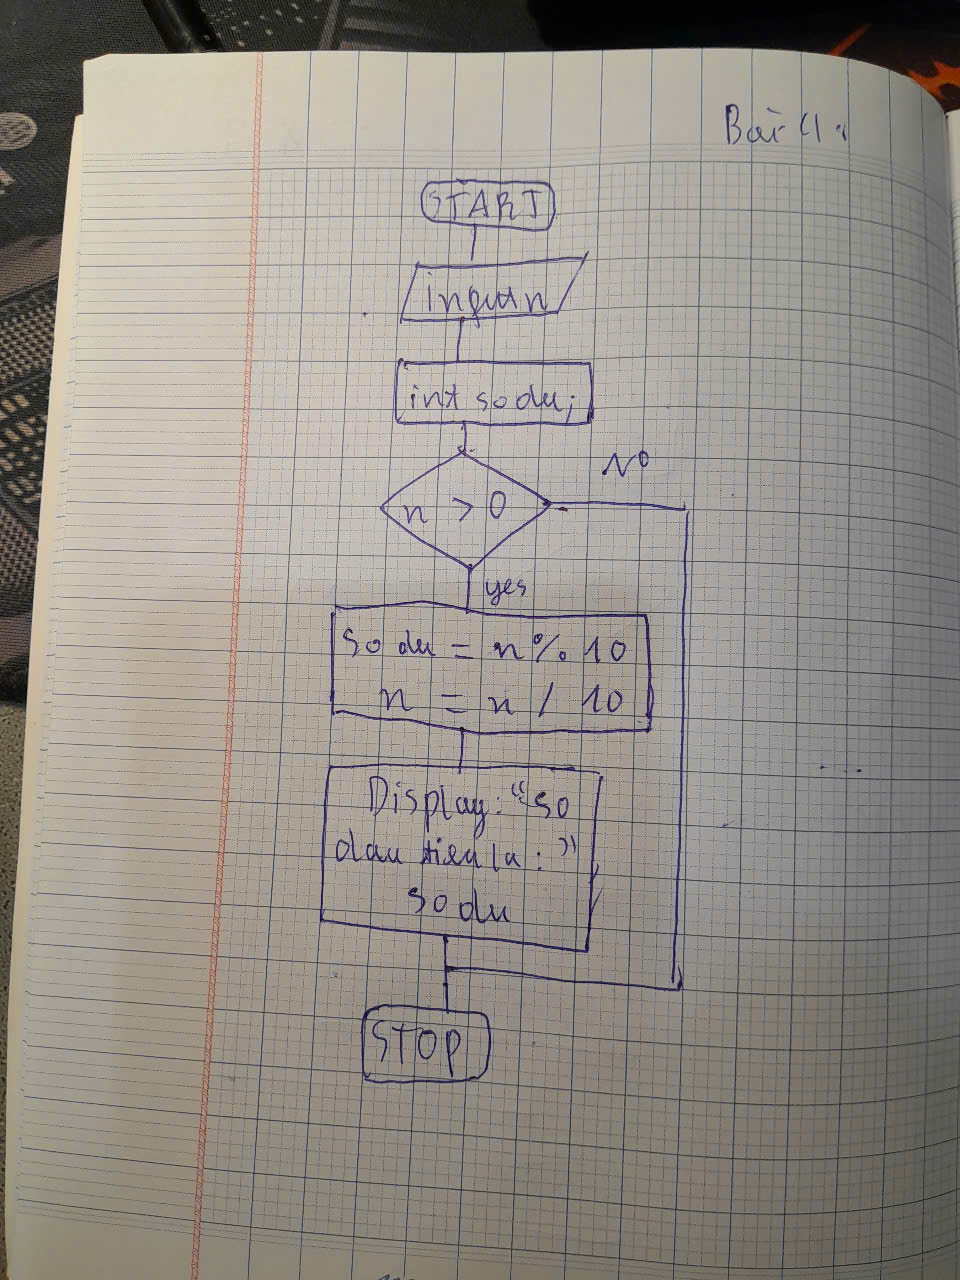 Bài 4:
START
input n
int so du;
n > 0
No
yes
so du = n % 10
n = n / 10
Display: "so
dau tien la: "
so du
STOP